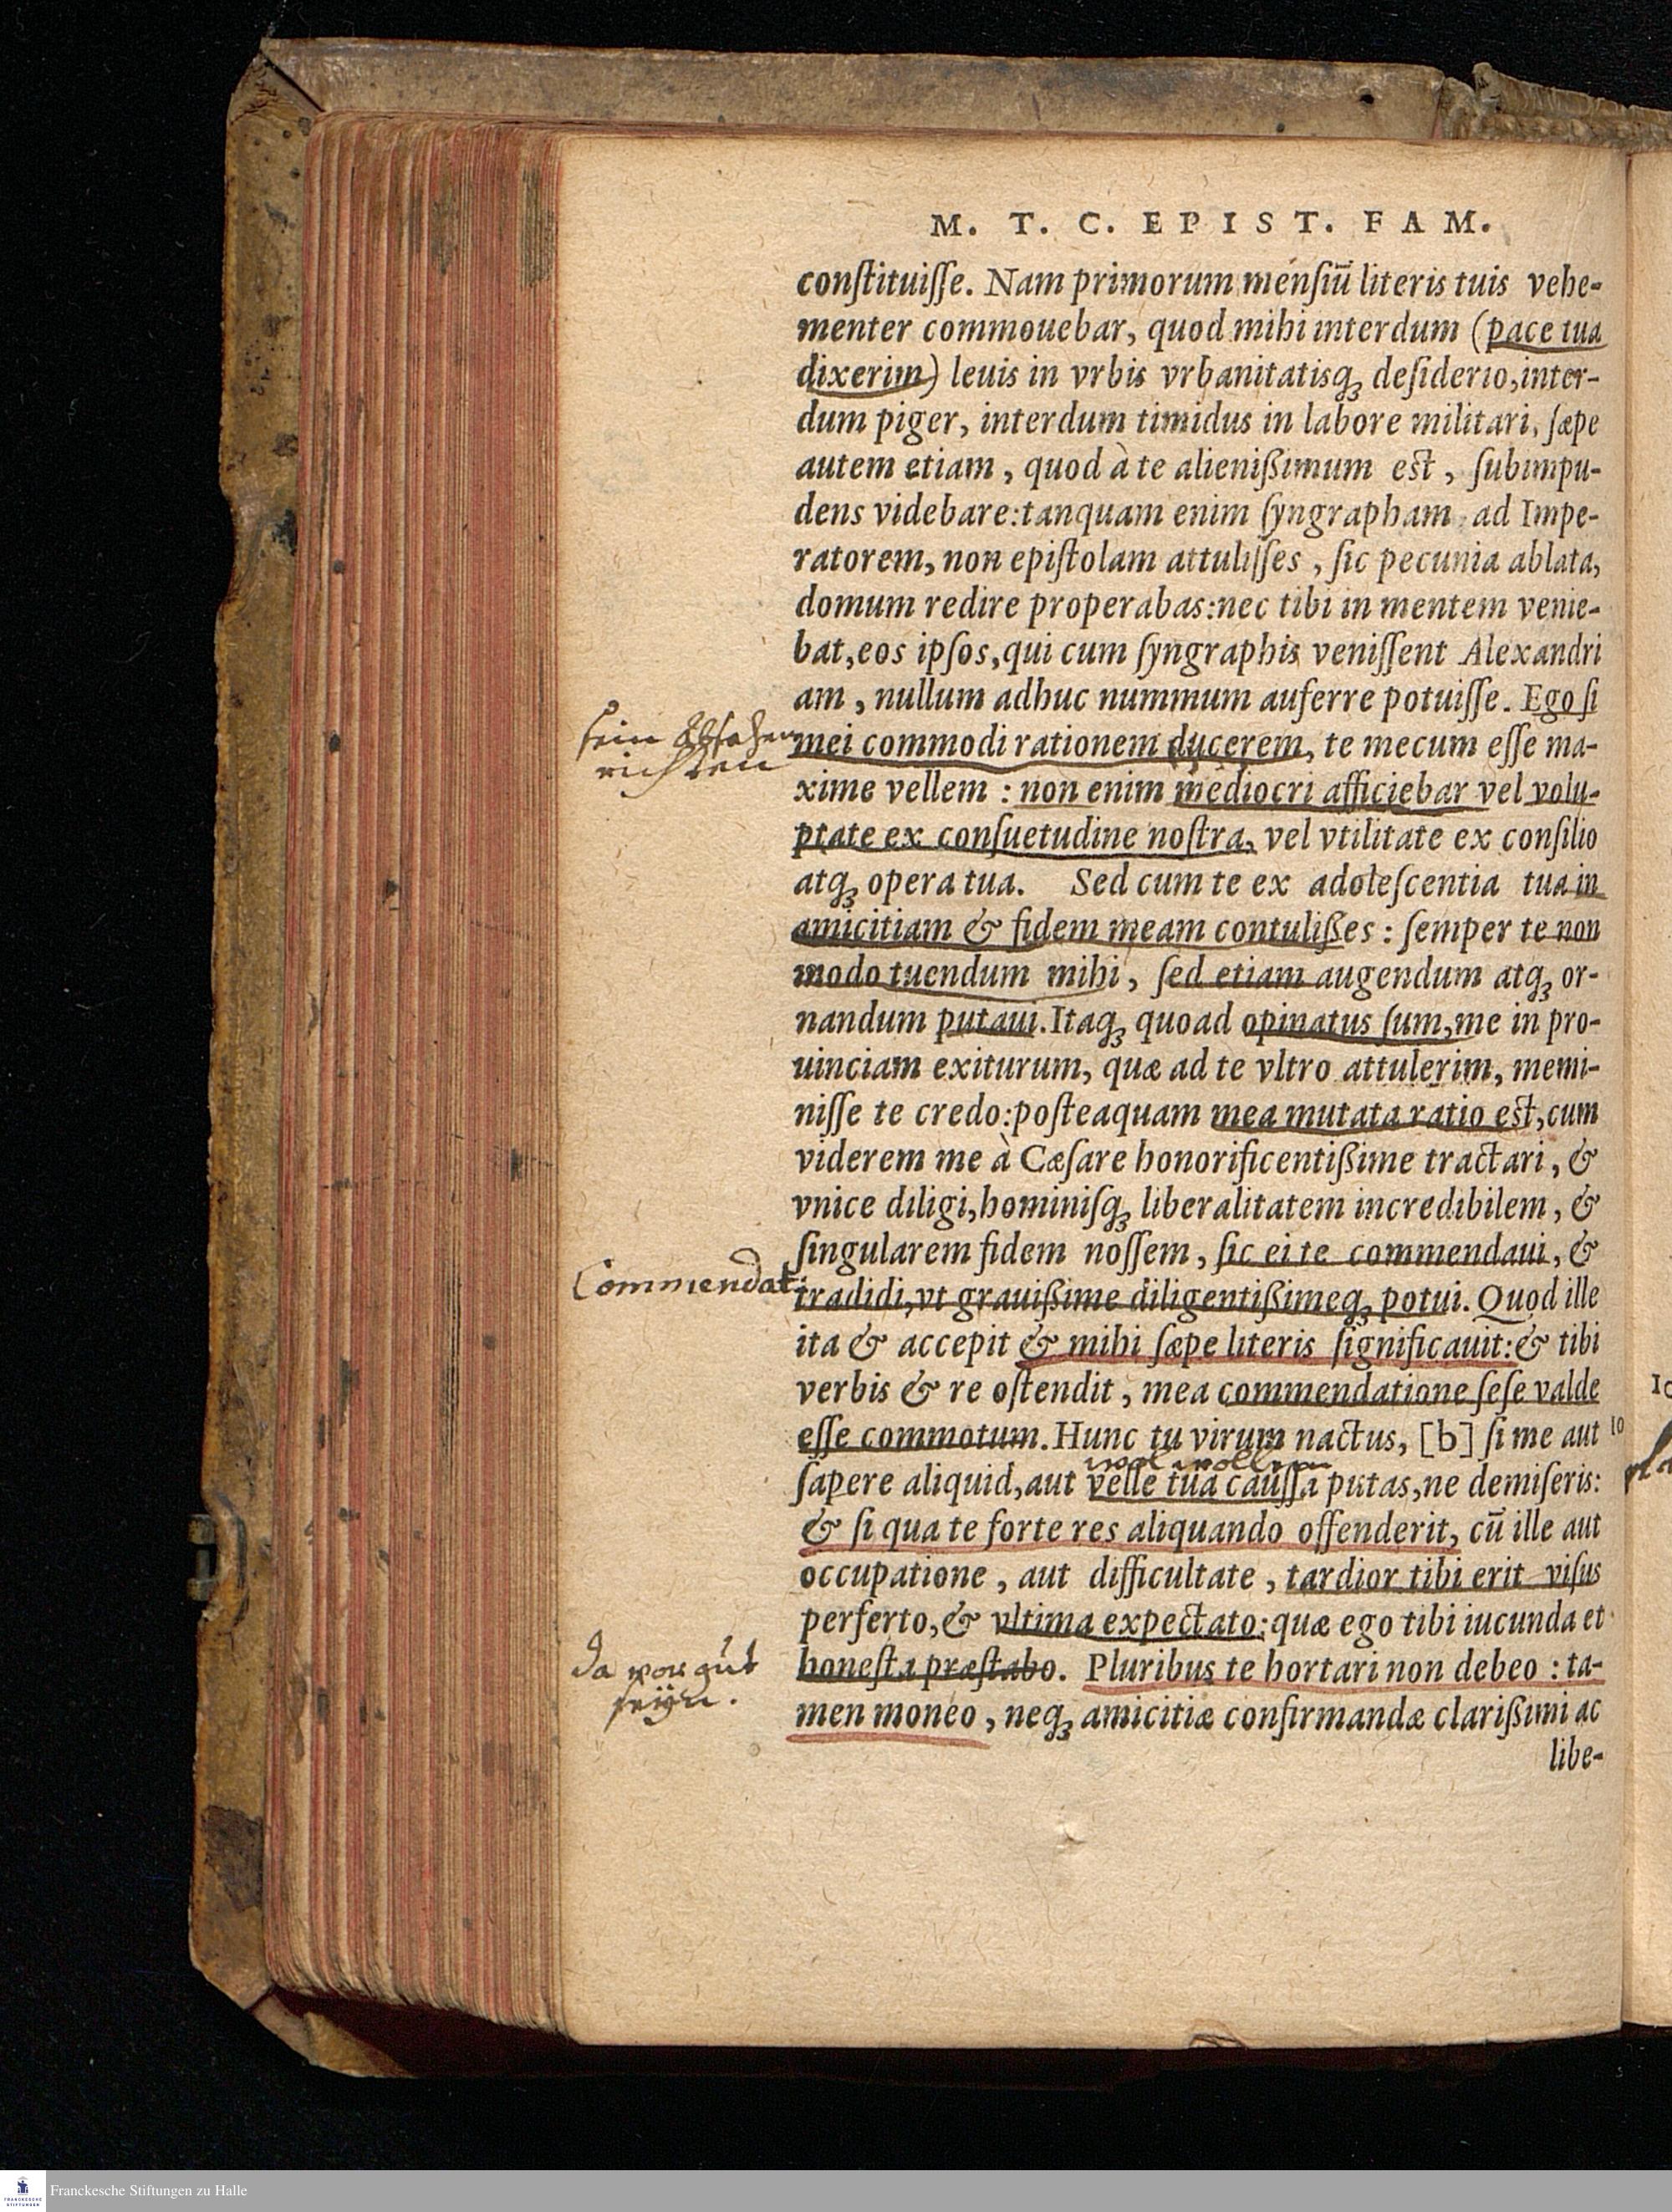 M. T. C. EPIST. FAM.
conſtituiſſe. Nam primorum menſiũ literis tuis vehe-
menter commouebar, quod mihi interdum (pace tua
dixerim) leuis in vrbis vrbanitatisqꝫ deſiderio, inter-
dum piger, interdum timidus in labore militari, ſæpe
autem etiam, quod à te alienißimum est, ſubimpu-
dens videbare: tanquam enim ſyngrapham ad Impe-
ratorem, non epiſtolam attuliſſes, ſic pecunia ablata,
domum redire properabas: nec tibi in mentem venie-
bat, eos ipſos, qui cum ſyngraphis veniſſent Alexandri
am, nullum adhuc nummum auferre potuiſſe. Ego ſi
sein absehen
richten
mei commodi rationem ducerem, te mecum eſſe ma-
xime vellem: non enim mediocri afficiebar vel volu-
ptate ex conſuetudine noſtra, vel vtilitate ex conſilio
atqꝫ opera tua. Sed cum te ex adoleſcentia tua in
amicitiam & fidem meam contulißes: ſemper te non
modo tuendum mihi, ſed etiam augendum atqꝫ or-
nandum putaui. Itaqꝫ quoad opinatus ſum, me in pro-
uinciam exiturum, quæ ad te vltro attulerim, memi-
niſſe te credo: poſteaquam mea mutata ratio est, cum
viderem me à Cæſare honorificentißime tractari, &
vnice diligi, hominiſqꝫ liberalitatem incredibilem, &
ſingularem fidem noſſem, ſic ei te commendaui, &
Commendat
tradidi, vt grauißime diligentißimeqꝫ potui. Quod ille
ita & accepit & mihi ſæpe literis ſignificauit: & tibi
verbis & re oſtendit, mea commendatione ſeſe valde
eſſe commotum. Hunc tu virum nactus, [b] ſi me aut
10
wol wollen
ſapere aliquid, aut velle tua cauſſa putas, ne demiſeris:
& ſi qua te forte res aliquando offenderit, cũ ille aut
occupatione, aut difficultate, tardior tibi erit viſus
perferto, & vltima expectato: quæ ego tibi iucunda et
da vor gut
seyn.
honeſta præſtabo. Pluribus te hortari non debeo: ta-
men moneo, neqꝫ amicitiæ confirmandæ clarißimi ac
libe-
Franckesche Stiftungen zu Halle